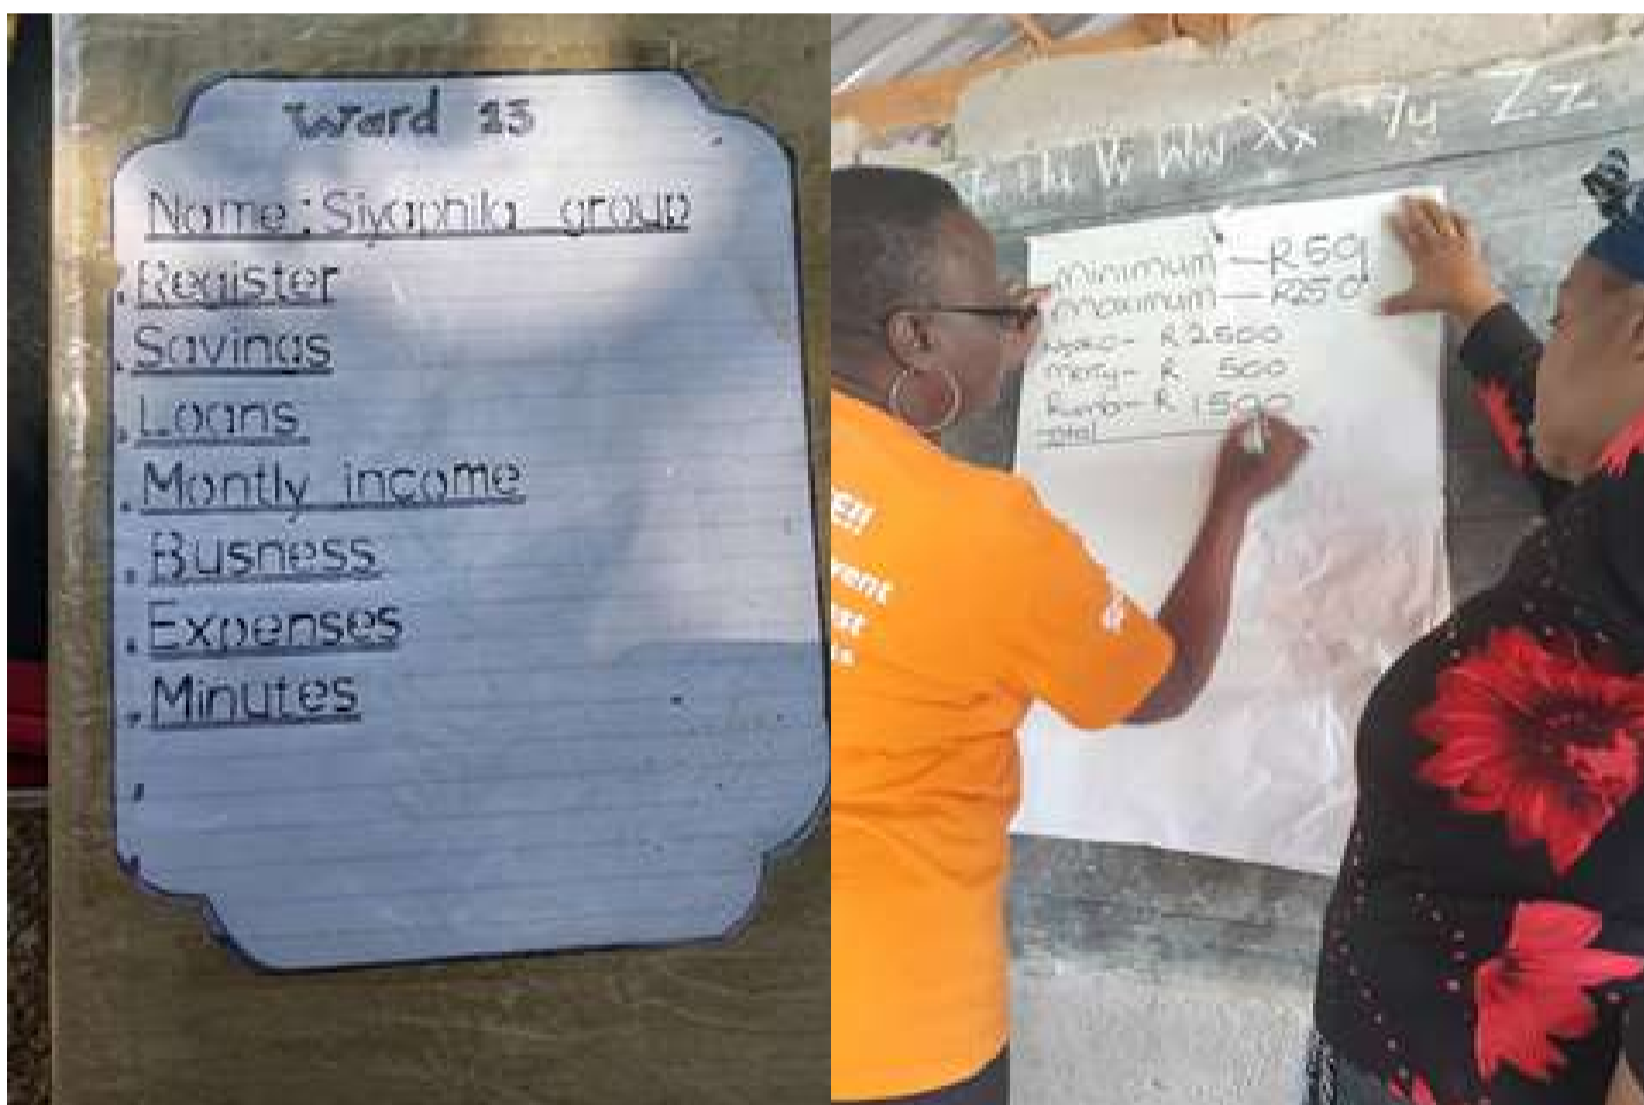 Ward 13
Name: Siyaphila group
Register
Savings
Loans
Montly income
Busness
Expenses
Minutes
Vv Ww Xx Yy Zz
Minimum — R50
Maximum — R250
R 2500
Mary - R 500
R 1500
Total